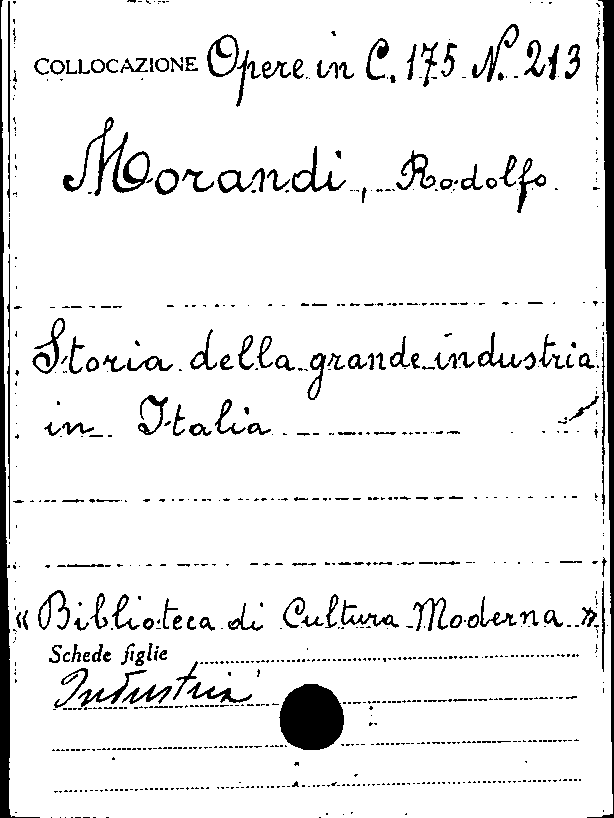 COLLOCAZIONE Opere in C. 175 N. 213
Morandi, Rodolfo
Storia della grande industria
in Italia
« Biblioteca di Cultura Moderna »
Schede figlie
Industria